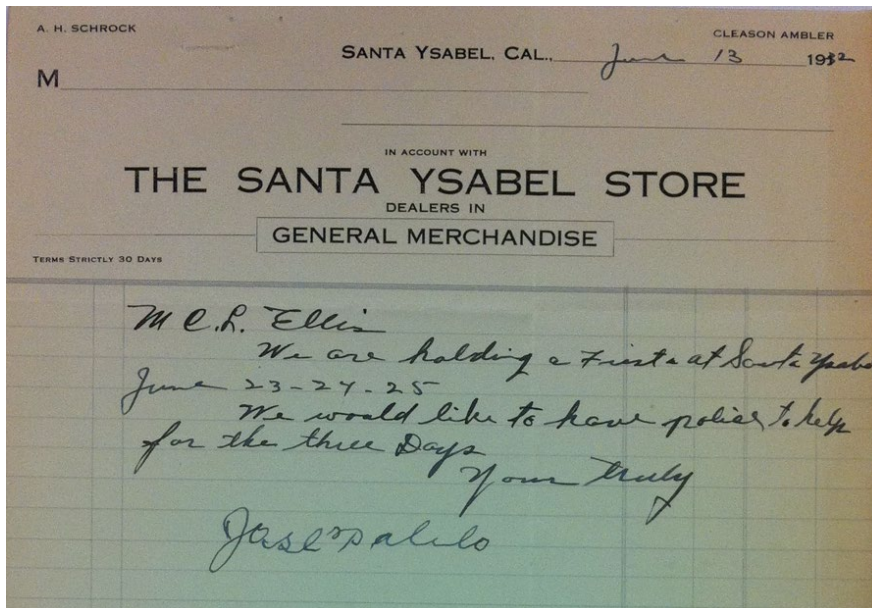 A. H. SCHROCK
CLEASON AMBLER
SANTA YSABEL, CAL., June 13 1932
M
IN ACCOUNT WITH
THE SANTA YSABEL STORE
DEALERS IN
GENERAL MERCHANDISE
TERMS STRICTLY 30 DAYS
M C. L. Ellis
We are holding a Fiesta at Santa Ysabe
June 23-24-25
We would like to have police to help
for the three Days
Your truly
Jose